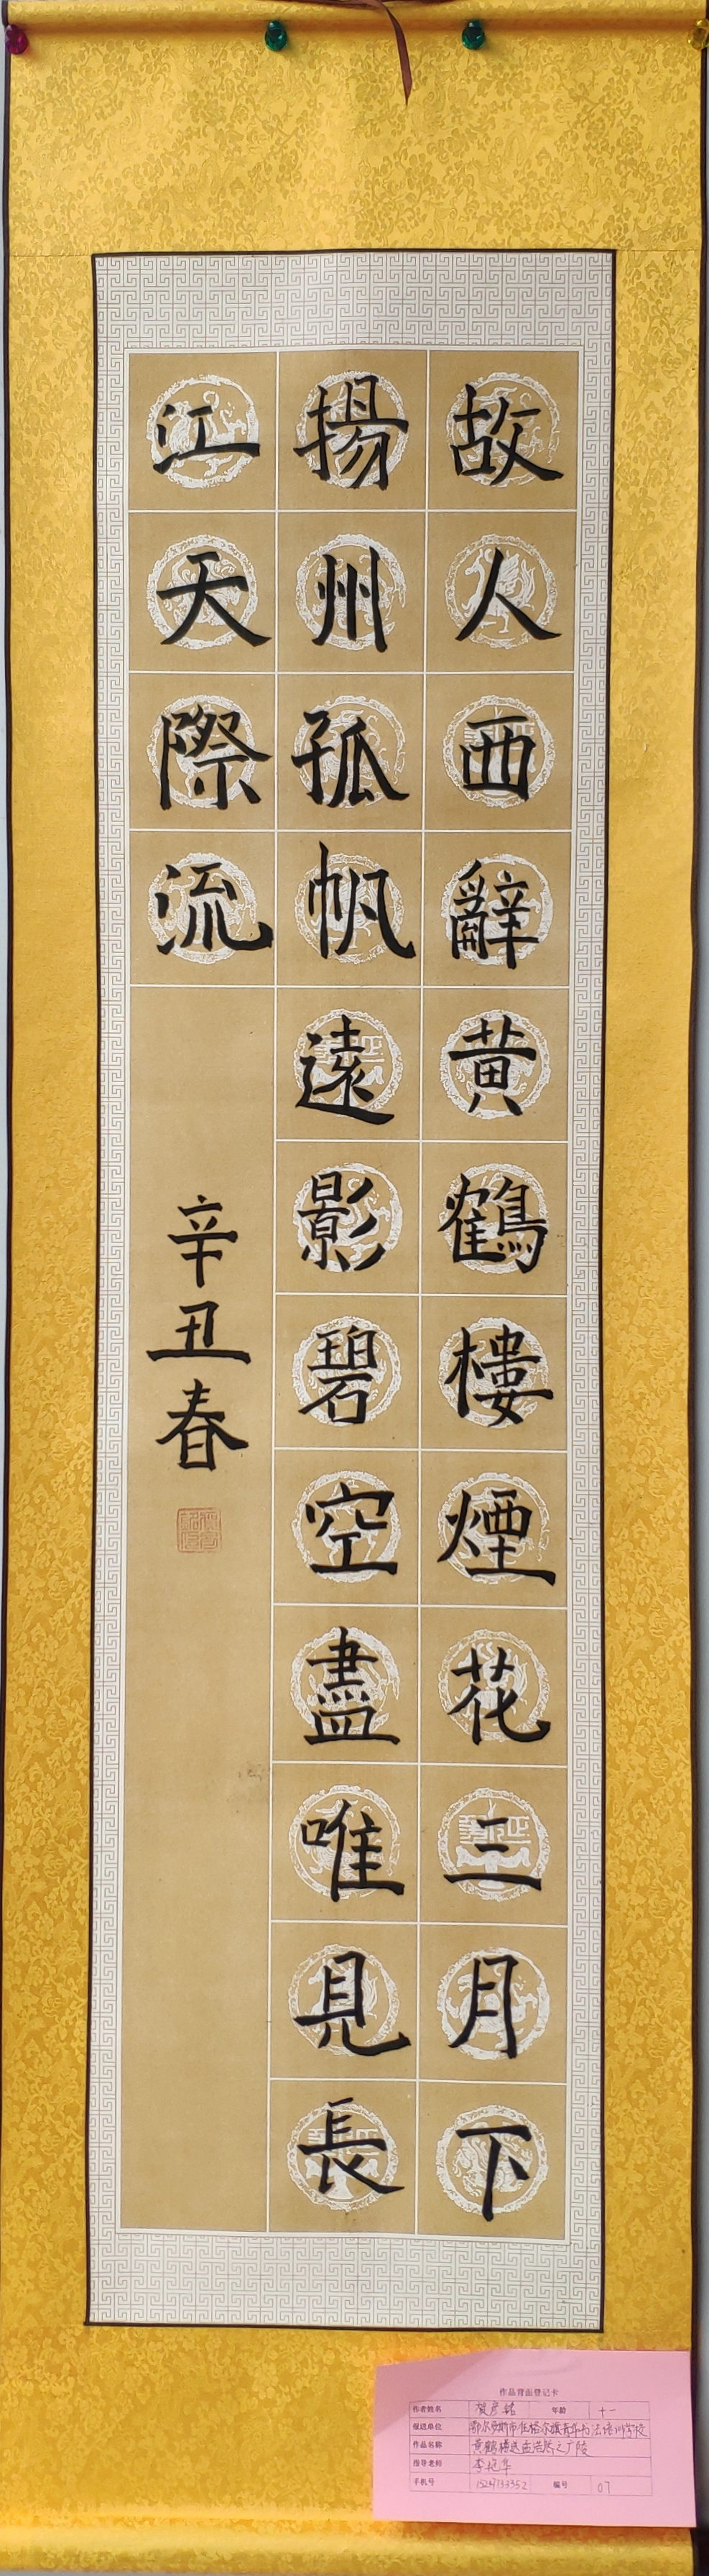 故人西辭黃鶴樓煙花三月下
揚州孤帆遠影碧空盡唯見長
江天際流
辛丑春
作品背面登记卡
作者姓名 贺彦铭 年龄 十一
报送单位 鄂尔多斯市准格尔旗青华书法培训学校
作品名称 黄鹤楼送孟浩然之广陵
指导老师 李艳华
手机号 编号 07